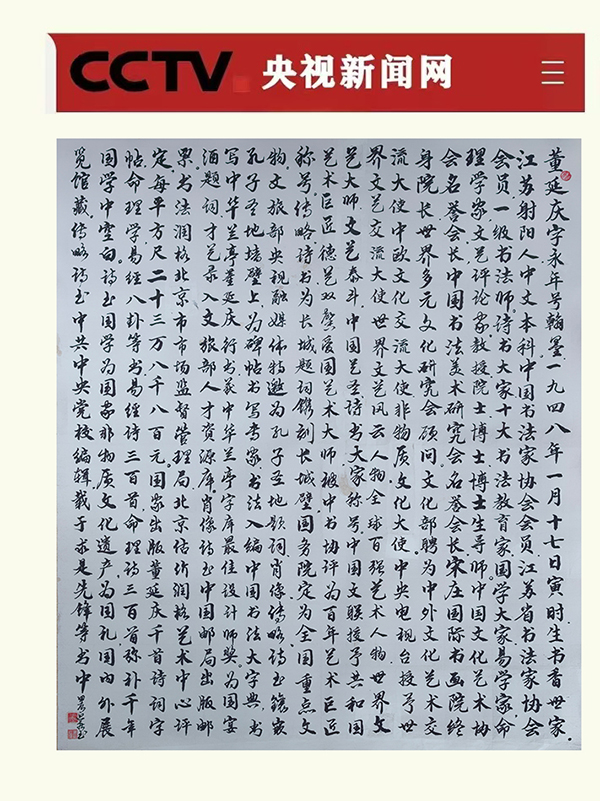 CCTV 央视新闻网
董延庆字永年号翰墨一九四八年一月十七日寅时生书香世家
江苏射阳人中文本科中国书法家协会会员江苏省书法家协会
会员一级书法师诗书大家十大书法教育家国学大家易学家命
理学家文艺评论家教授院士博士博士生导师中国文化艺术协
会名誉会长中国书法美术研究会名誉会长宋庄国际书画院终
身院长世界多元文化研究会顾问文化部聘为中外文化艺术交
流大使中欧文化交流大使非物质文化大使中央电视台授予世
界文艺交流大使世界文艺风云人物全球百强艺术人物世界文
艺大师文艺泰斗中国艺圣诗书大家称号中国文联授予共和国
艺术巨匠德艺双馨爱国艺术大师被中书协评为百年艺术巨匠
称号传略诗书为长城题词镌刻长城壁国务院定为全国重点文
物文旅部央视融媒体特邀为孔子圣地题词肖像传略诗玉镶嵌
孔子圣地墙壁上为碑帖书写专家书法入编中国书法大字典书
写中华兰亭董延庆行书获中华兰亭字库最佳设计师奖为国宴
酒题词才艺录入文旅部人才资源库肖像诗玉中国邮局出版邮
票书法润格北京市市场监督管理局北京估价润格艺术中心评
定每平方尺二十三万八千八百元国家出版董延庆千首诗词字
帖命理学易经八卦等书易经诗三百首命理诗三百首称补千年
国学中空白诗玉国学为国家非物质文化遗产为国礼国内外展
览馆藏传略诗玉中共中央党校编辑载于求是先锋等书中